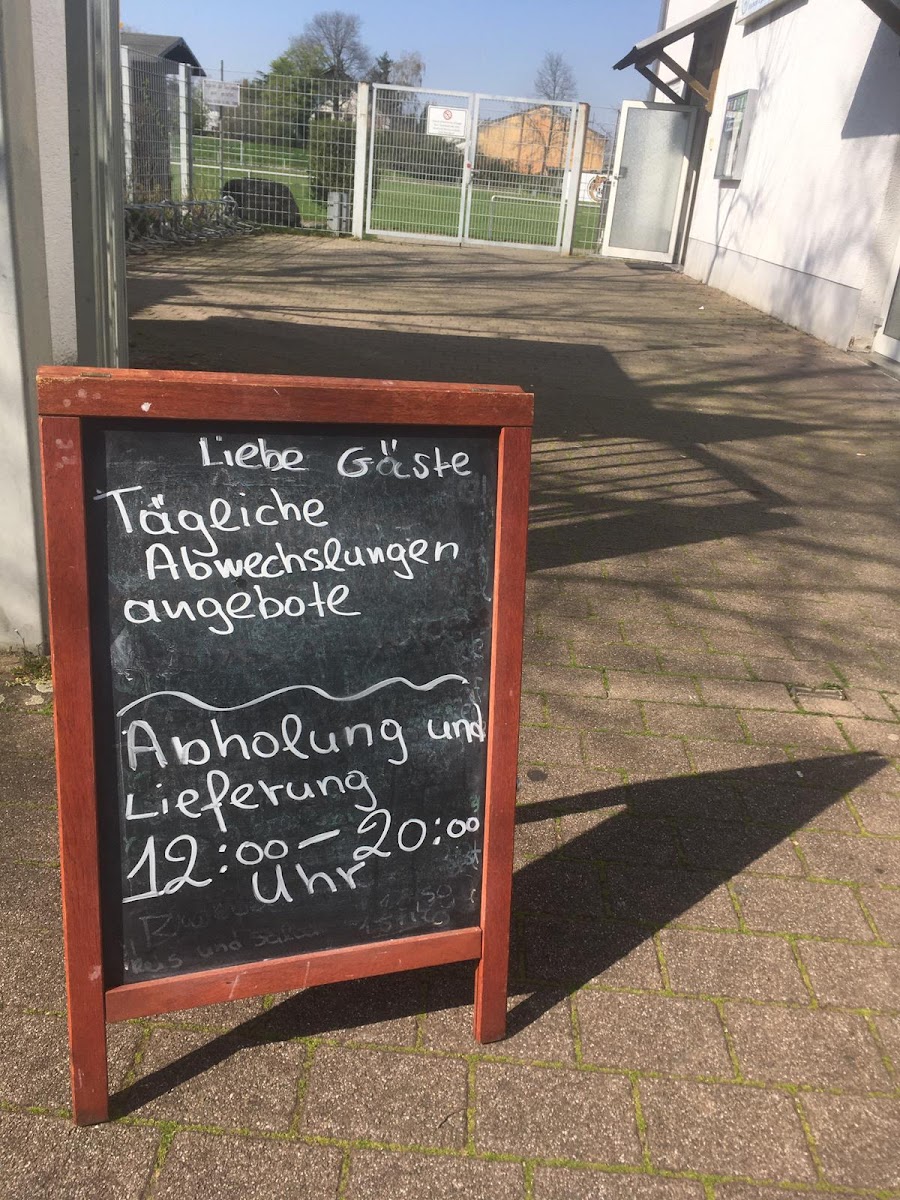 Liebe Gäste
Tägliche
Abwechslungen
angebote
Abholung und
Lieferung
12:00 – 20:00
Uhr